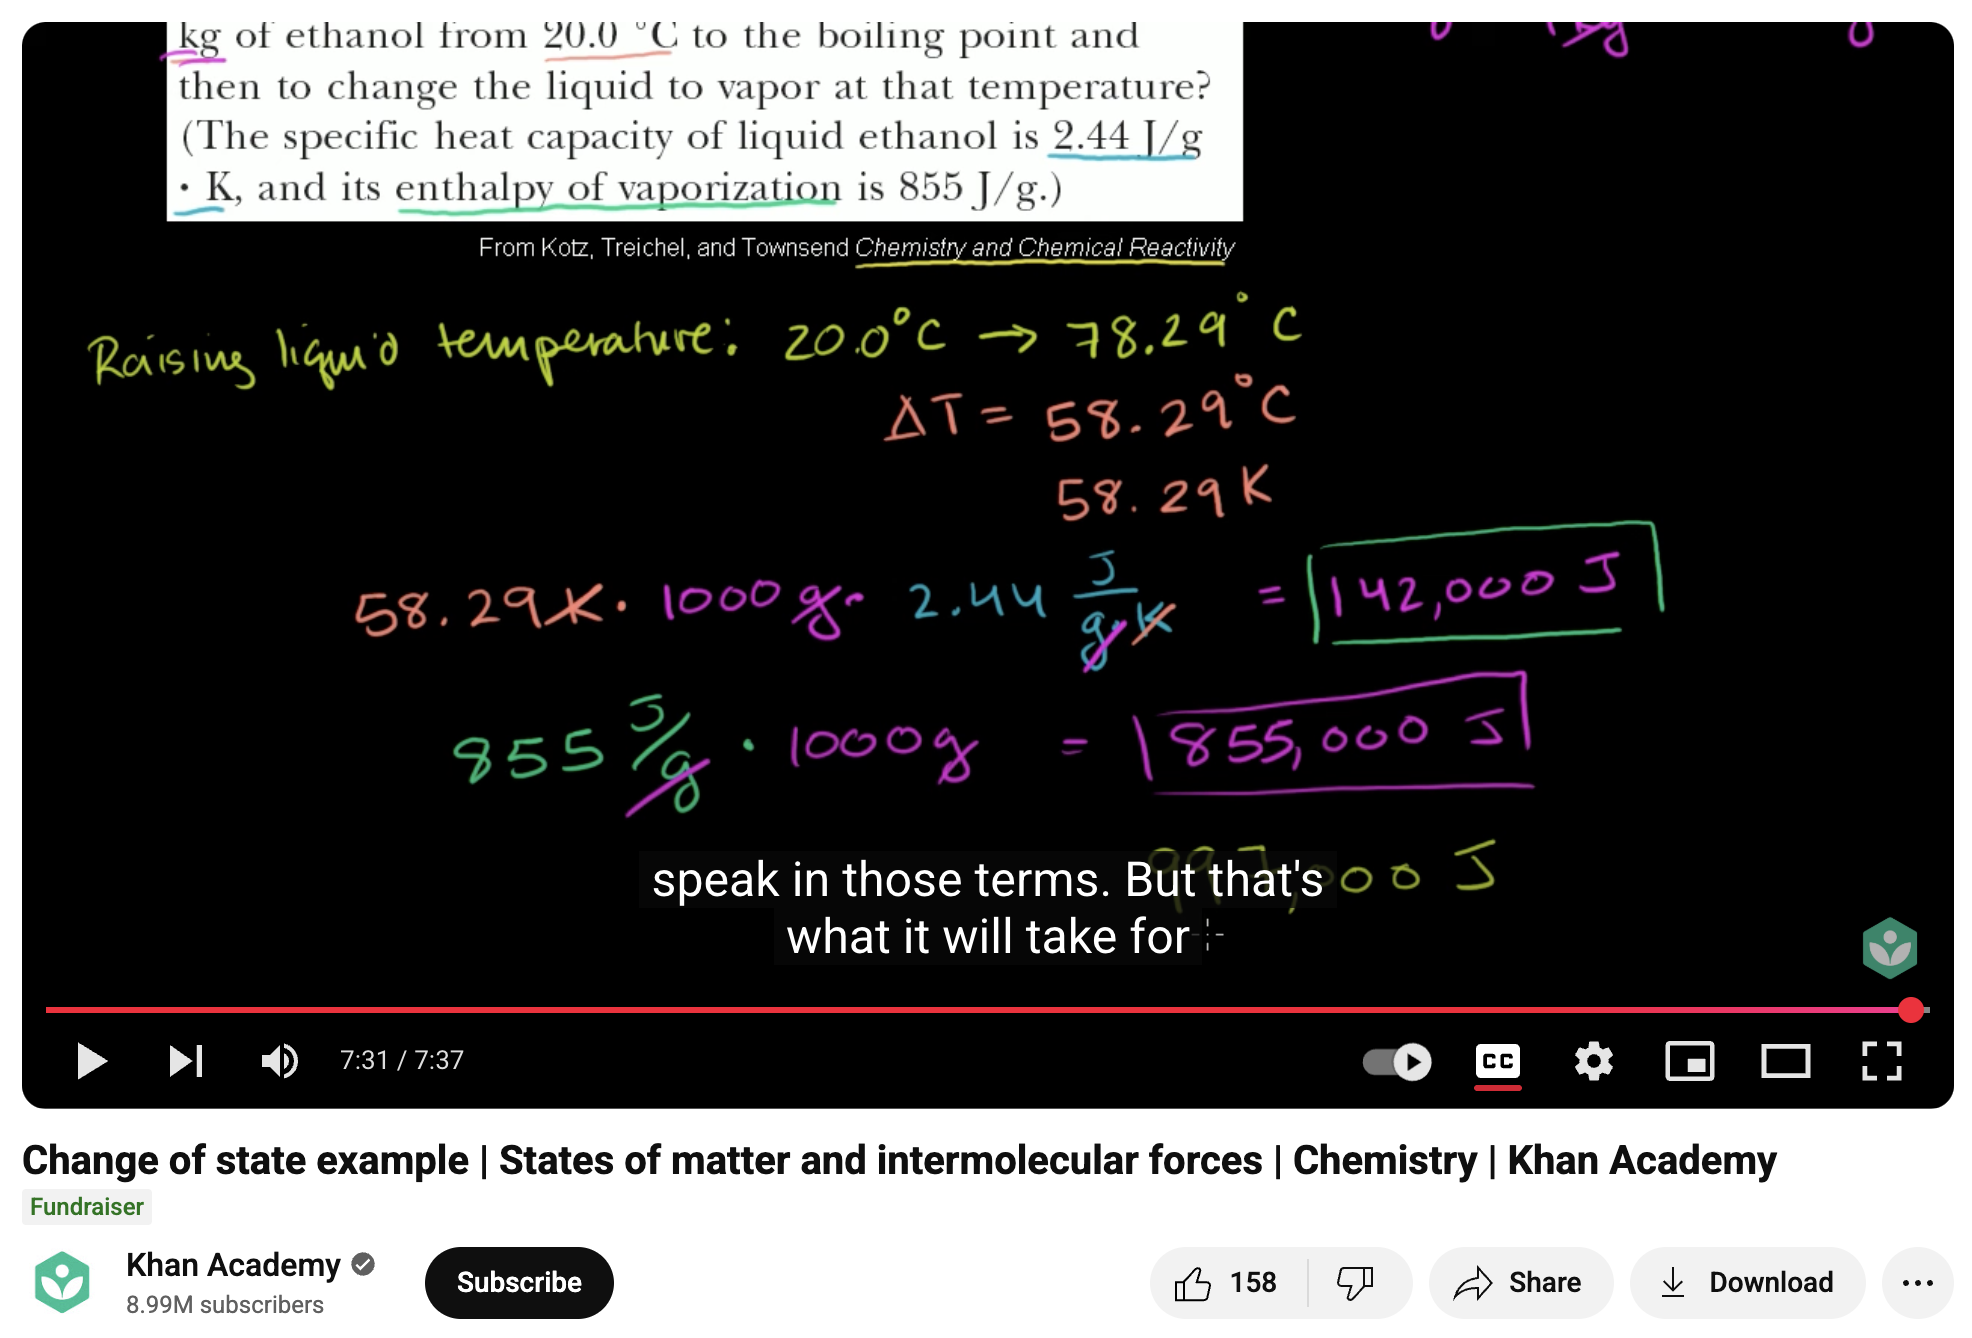 kg of ethanol from 20.0 °C to the boiling point and
then to change the liquid to vapor at that temperature?
(The specific heat capacity of liquid ethanol is 2.44 J/g
· K, and its enthalpy of vaporization is 855 J/g.)
From Kotz, Treichel, and Townsend Chemistry and Chemical Reactivity
Raising liquid temperature: 20.0°C → 78.29°C
ΔT = 58.29°C
58.29K
58.29K · 1000g · 2.44 J/g·K = 142,000 J
855 J/g · 1000g = 855,000 J
997,000 J
speak in those terms. But that's
what it will take for
7:31 / 7:37
CC
Change of state example | States of matter and intermolecular forces | Chemistry | Khan Academy
Fundraiser
Khan Academy
8.99M subscribers
Subscribe
158
Share
Download